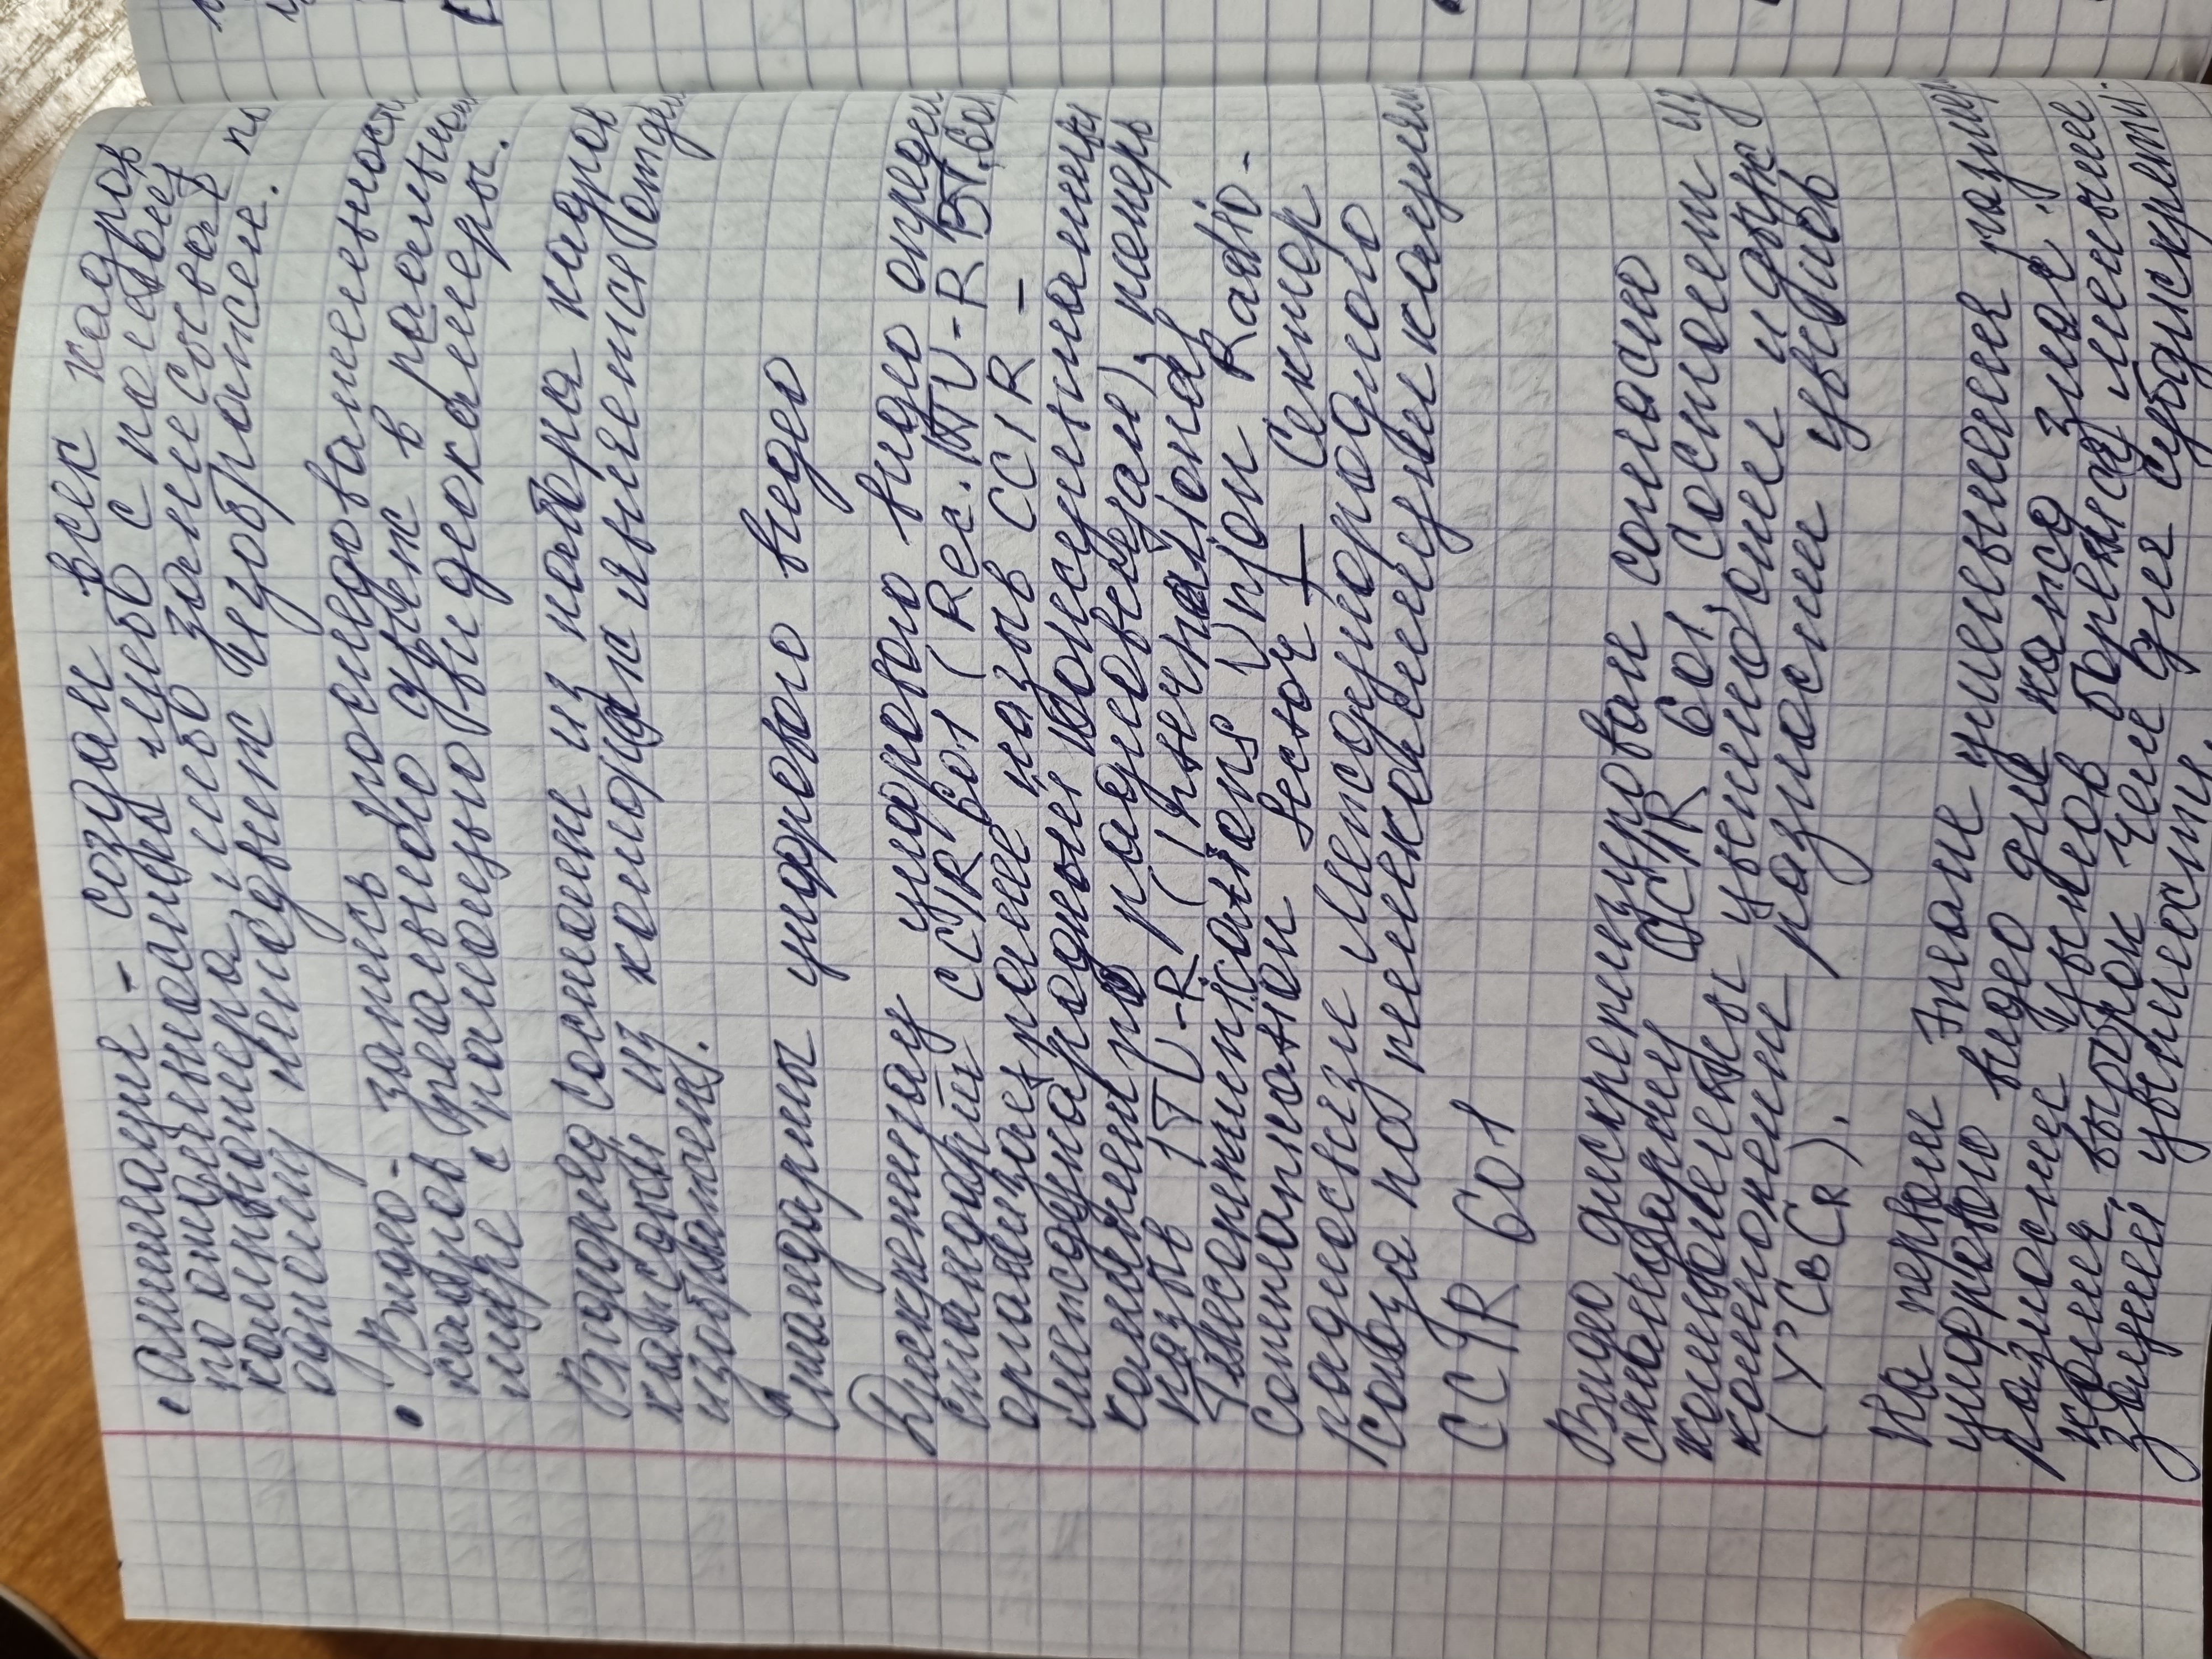 • Анимация – создан всех кадров
по отдельности либо с помощ
компьютера, либо записывая по
одному неподвиж изображен.
• Видео – запись последовательност
кадров реального движ в реальном
мире с помощью видеокамеры.
Видеоряд состоит из набора кадров
каждый из которых является отдел
изображен.
Стандарты цифрового видео
Дискретизац цифрового видео определ
стандарт CCIR 601 (Rec. ITU-R BT.601,
организац ранее назыв CCIR –
международный консультативн
комитет по радиовещан), теперь
назыв ITU-R (International
Telecommunications Union Radio-
communication Sector – Сектор
радиосвязи Международного
союза по телекоммуникациям
CCIR 601
Видео, дискретизирован согласно
стандарту CCIR 601, состоит из
компоненты цветности и двух
компонент разности цветов
(Y'CBCR).
На первом этапе уменьшения размер
цифрового видео для кажд знач.
разности цветов берется меньшее
колич. выборок чем для субдискрети-
цветности.